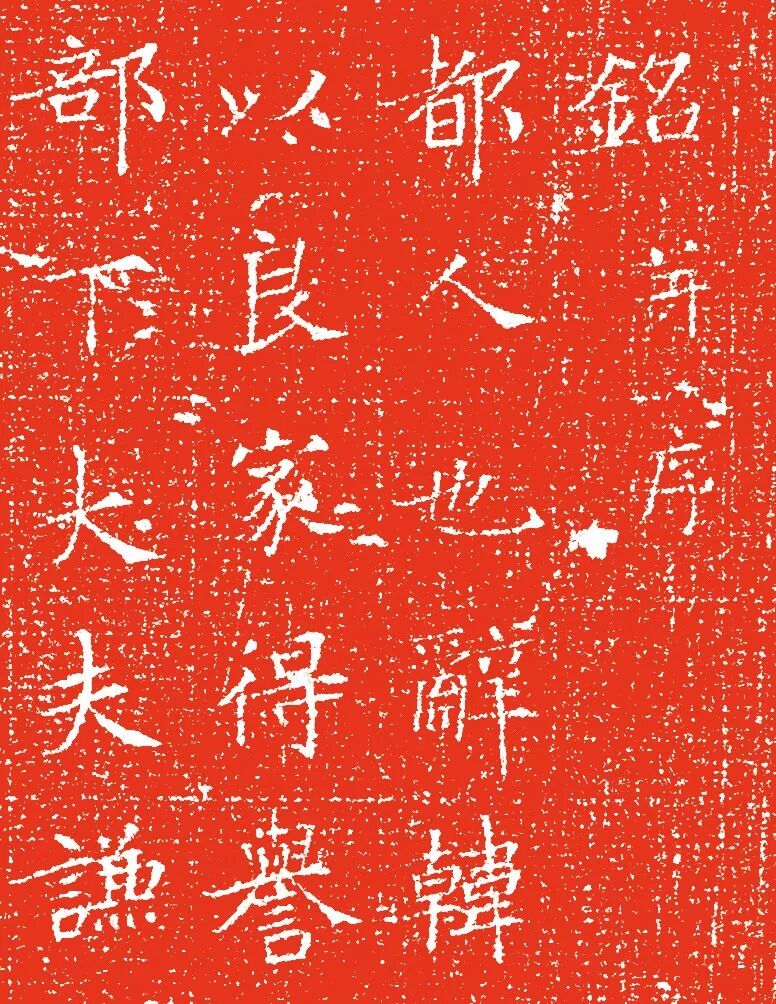 銘并序
都人也辭韓
以良家得譽
部下大夫謙